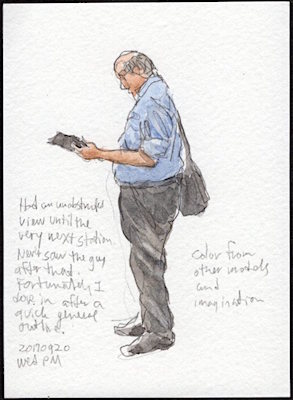 Had an unobstructed
view until the
very next station
Never saw the guy
after that.
Fortunately I
in after a
quick general
outline.
20170920
Wed PM
Color from
other models
and
imagination